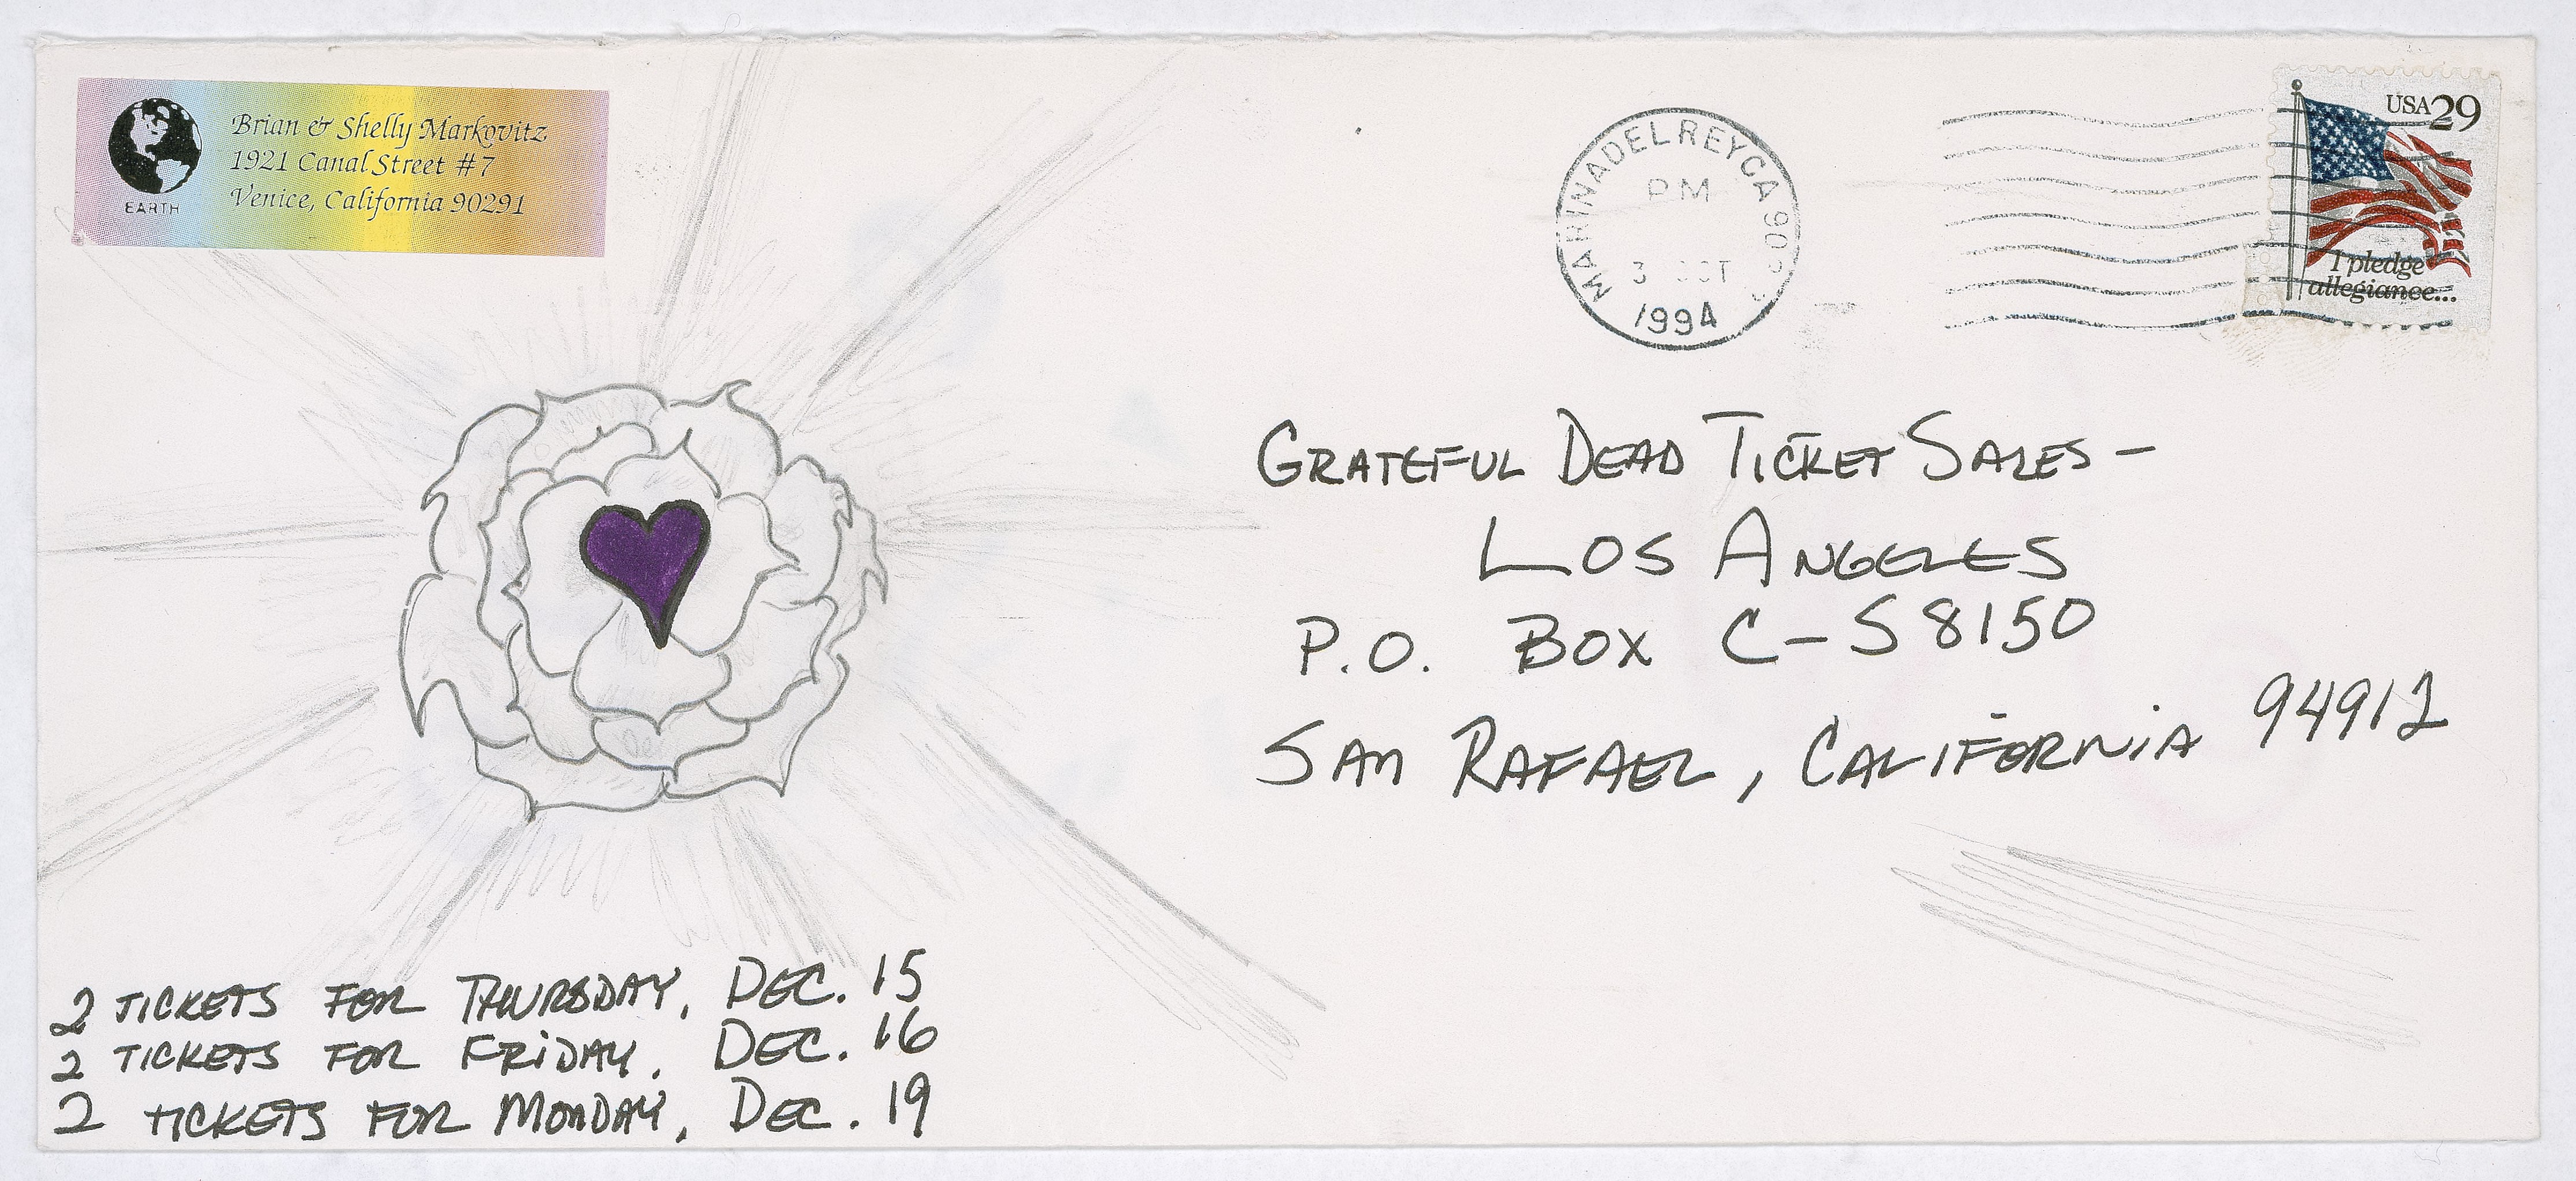 Brian & Shelly Markovitz
1921 Canal Street #7
Venice, California 90291
EARTH
MARINA DEL REY CA
PM
3 OCT
1994
USA 29
I pledge
allegiance...
GRATEFUL DEAD TICKET SALES-
LOS ANGELES
P.O. BOX C-S8150
SAN RAFAEL, CALIFORNIA 94912
2 TICKETS FOR THURSDAY, DEC. 15
2 TICKETS FOR FRIDAY, DEC. 16
2 TICKETS FOR MONDAY, DEC. 19